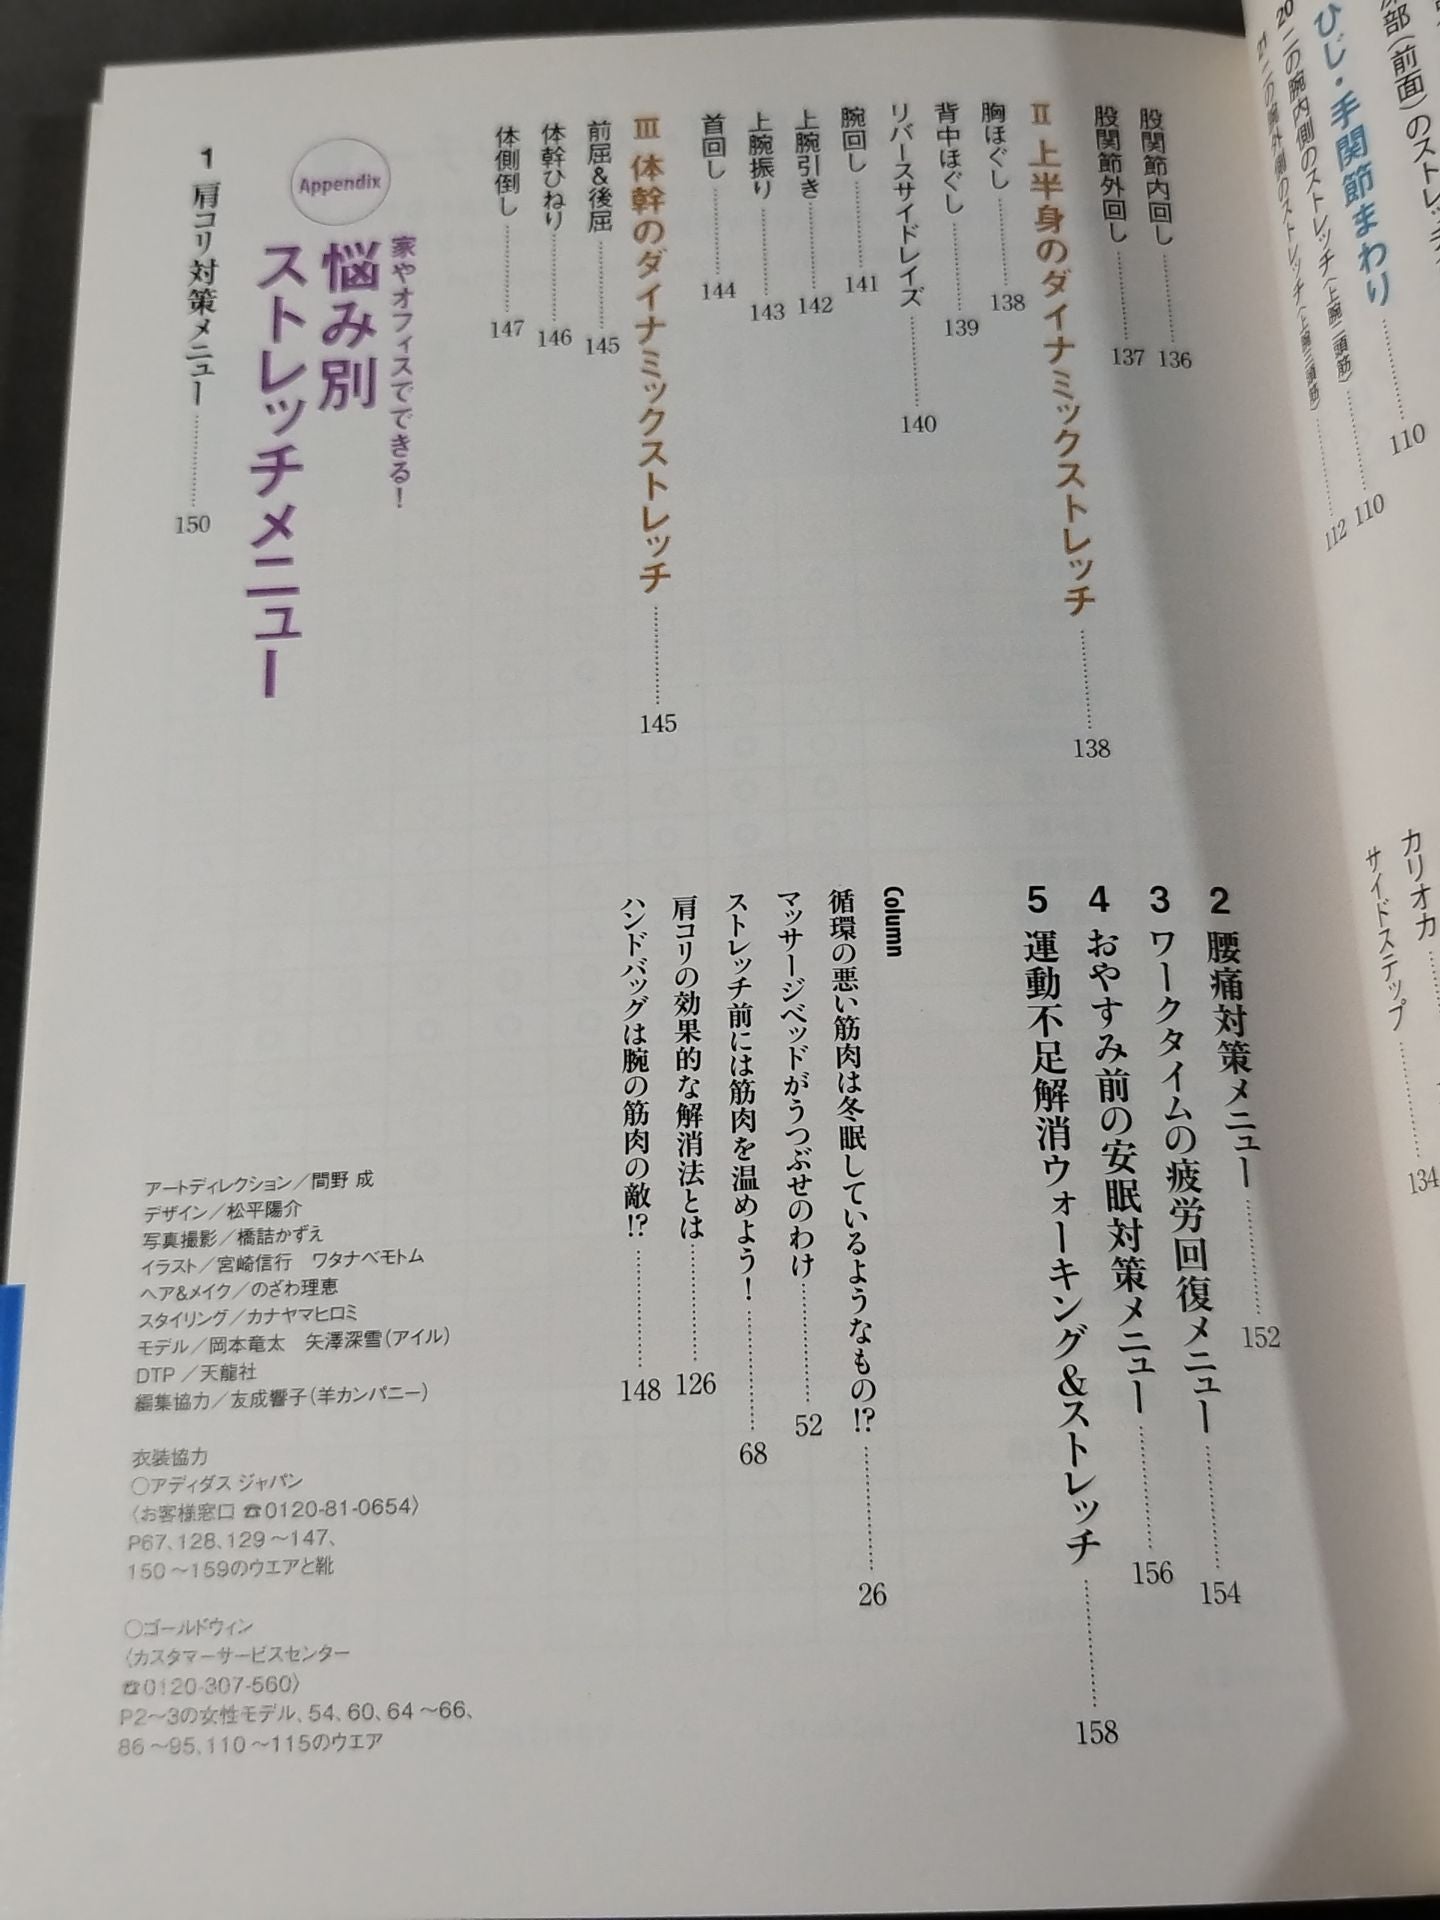 部(前面)のストレッチ
ひじ・手関節まわり………110
20 二の腕内側のストレッチ(上腕二頭筋)………110
21 二の腕外側のストレッチ(上腕三頭筋)………112
カリオカ
サイドステップ………134
股関節内回し………136
股関節外回し………137
Ⅱ 上半身のダイナミックストレッチ………138
胸ほぐし………138
背中ほぐし………139
リバースサイドレイズ………140
腕回し………141
上腕引き………142
上腕振り………143
首回し………144
Ⅲ 体幹のダイナミックストレッチ………145
前屈&後屈………145
体幹ひねり………146
体側倒し………147
Appendix
家やオフィスでできる!
悩み別
ストレッチメニュー
1 肩コリ対策メニュー………150
2 腰痛対策メニュー………152
3 ワークタイムの疲労回復メニュー………154
4 おやすみ前の安眠対策メニュー………156
5 運動不足解消ウォーキング&ストレッチ………158
Column
循環の悪い筋肉は冬眠しているようなもの!?………26
マッサージベッドがうつぶせのわけ………52
ストレッチ前には筋肉を温めよう!………68
肩コリの効果的な解消法とは………126
ハンドバッグは腕の筋肉の敵!?………148
アートディレクション/間野 成
デザイン/松平陽介
写真撮影/橋詰かずえ
イラスト/宮崎信行　ワタナベモトム
ヘア&メイク/のざわ理恵
スタイリング/カナヤマヒロミ
モデル/岡本竜太　矢澤深雪(アイル)
DTP/天龍社
編集協力/友成響子(羊カンパニー)
衣装協力
○アディダス ジャパン
〈お客様窓口 ☎0120-81-0654〉
P67、128、129〜147、
150〜159のウエアと靴
○ゴールドウィン
〈カスタマーサービスセンター
☎0120-307-560〉
P2〜3の女性モデル、54、60、64〜66、
86〜95、110〜115のウエア